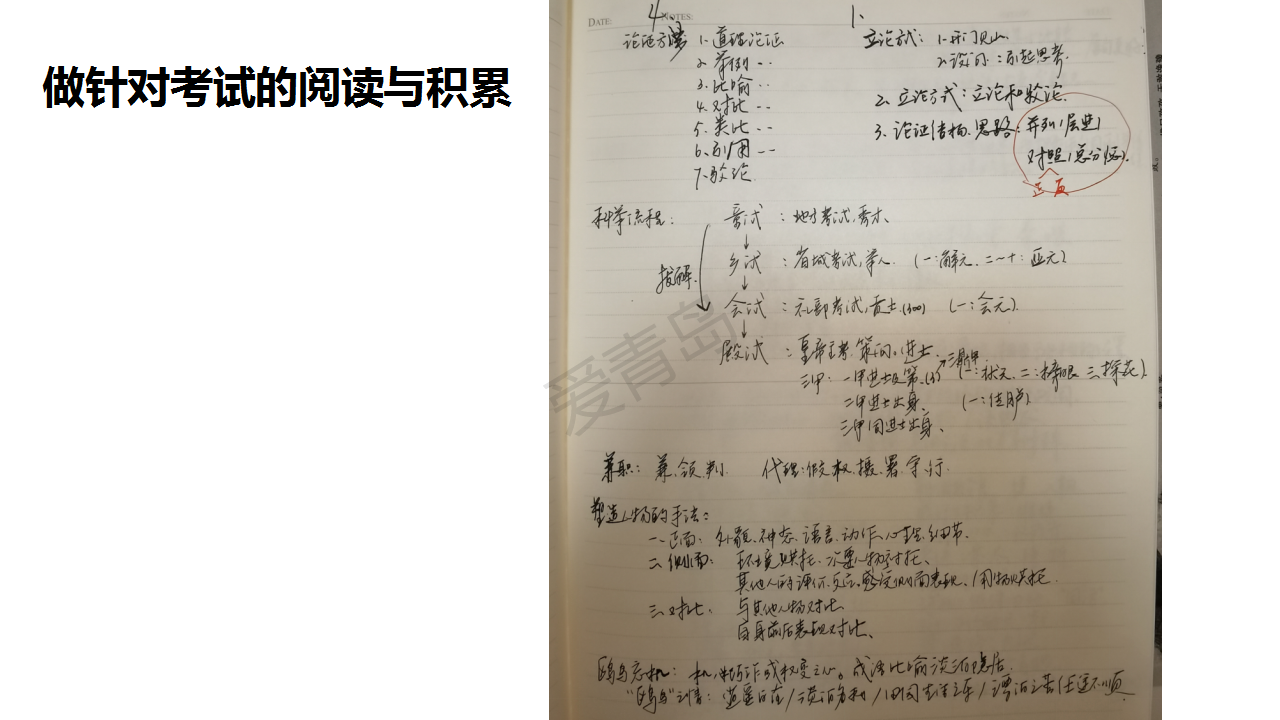 做针对考试的阅读与积累
DATE:
4. NOTES:
论证方法 1. 道理论证
2. 举例 --
3. 比喻 --
4. 对比 --
5. 类比 --
6. 引用 --
7. 驳论
1.
立论式: 1. 开门见山
2. 设问: 引起思考.
2. 立论方式: 立论和驳论.
3. 论证结构、思路: 并列/层进/
对照/总分总).
正反
科举流程:
童试 : 地方考试, 秀才、
↓
乡试 : 省城考试, 举人. (一:解元, 二~十: 亚元)
↓
发解.
会试 : 礼部考试, 贡士.(300) (一:会元).
↓
殿试 : 皇帝主考. 策问. 进士.
三鼎甲
三甲: 一甲进士及第.(3) (一:状元. 二:榜眼 三探花).
二甲进士出身、 (一:传胪)
三甲同进士出身、
兼职: 兼. 领. 判. 代理: 假. 权. 摄. 署. 守. 行.
塑造人物的手法:
一. 正面: 外貌. 神态. 语言. 动作. 心理. 细节.
二. 侧面: 环境烘托. 次要人物衬托、
其他人的评价、反应、感受侧面表现、/用物烘托.
三. 对比: 与其他人物对比
自身前后表现对比、
鸥鸟忘机: 机, 巧诈或权变之心。成语比喻淡泊隐居.
"鸥鸟"之情: 逍遥自在/淡泊名利/
爱青岛